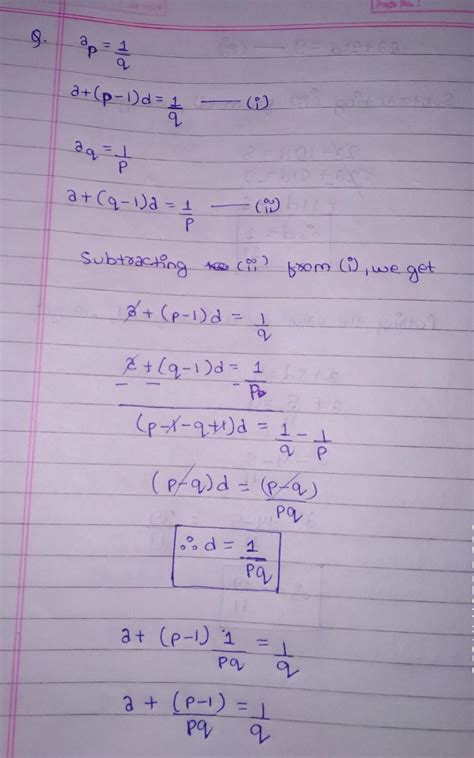 Q. a_p = 1/q
a+(p-1)d = 1/q —— (i)
a_q = 1/p
a+(q-1)d = 1/p —— (ii)
Subtracting (ii) from (i), we get
a+(p-1)d = 1/q
a+(q-1)d = 1/p
— — —
(p-1-q+1)d = 1/q - 1/p
(p-q)d = (p-q)/pq
∴ d = 1/pq
a + (p-1) 1/pq = 1/q
a + (p-1)/pq = 1/q